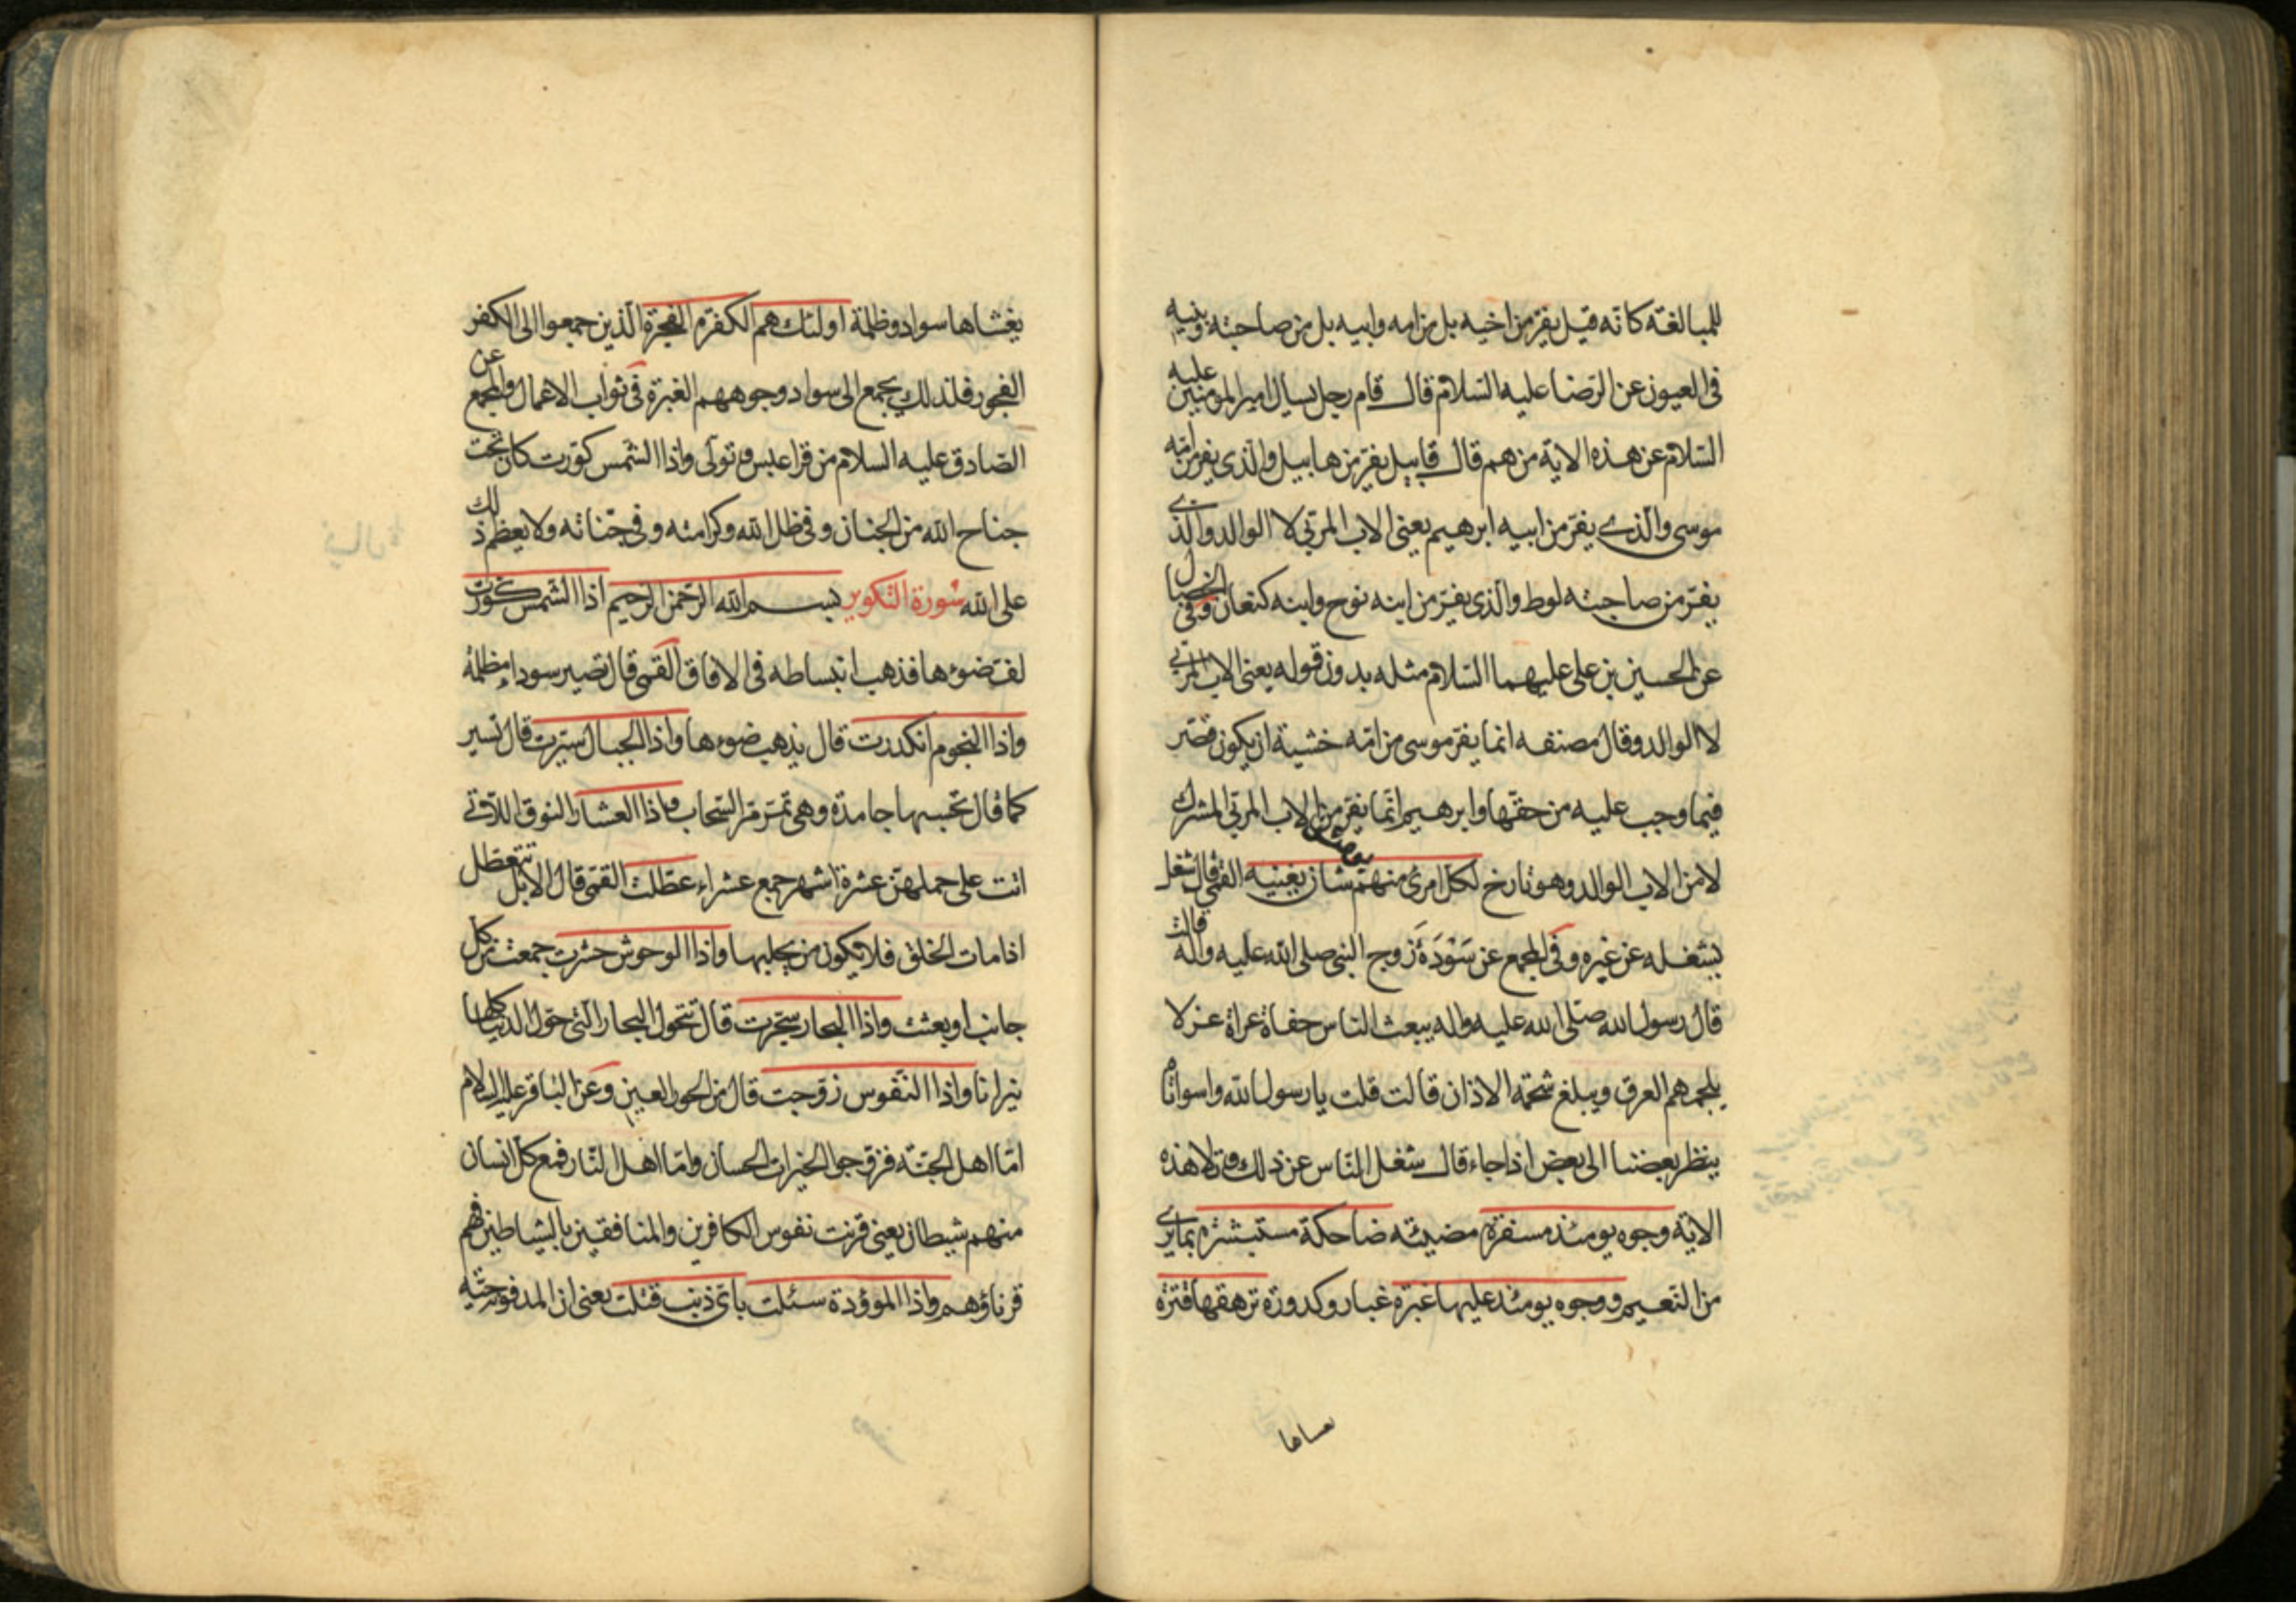 للمبالغة كانه قيل يفر من اخيه بل من امه وابيه بل من صاحبته وبنيه
فى العيون عن الرضا عليه السلام قال قام رجل يسأل امير المومنين عليه
السلام عن هذه الاية من هم قال قابيل يفر من هابيل والذى يفر من امه
موسى والذى يفر من ابيه ابرهيم يعنى الاب المربى لا الوالد والذى
يفر من صاحبته لوط والذى يفر من ابنه نوح وابنه كنعان وفى الخصال
عن الحسين بن على عليهما السلام مثله بدون قوله يعنى الاب المربى
لا الوالد وقال مصنفه انما يفر موسى من امه خشية ان يكون قصر
فيما وجب عليه من حقها وابرهيم انما يفر من الاب المربى المشرك
لا من الاب الوالد وهو تارخ لكل امرئ منهم يومئذ شان يغنيه القمى قال شغل
يشغله عن غيره وفى المجمع عن سَوْدَةَ زوج النبى صلى الله عليه واله قالت
قال رسول الله صلى الله عليه واله يبعث الناس حفاة عراة عزلا
يلجمهم العرق ويبلغ شحمة الاذان قالت قلت يا رسول الله واسواتاه
ينظر بعضنا الى بعض اذا جاء قال شغل الناس عن ذلك وتلا هذه
الاية وجوه يومئذ مسفرة مضيئة ضاحكة مستبشرة بما يرى
من النعيم ووجوه يومئذ عليها غبرة غبار وكدورة ترهقها قترة
يغشاها سواد وظلمة اولئك هم الكفرة الفجرة الذين جمعوا الى الكفر
الفجور فلذلك يجمع الى سواد وجوههم الغبرة فى ثواب الاعمال والمجمع عن
الصادق عليه السلام من قرا عبس وتولى واذا الشمس كورت كان تحت
جناح الله من الجنان وفى ظل الله وكرامته وفى جناته ولا يعظم ذلك
على الله سورة التكوير بسم الله الرحمن الرحيم اذا الشمس كورت
لف ضوءها فذهب انبساطه فى الافاق القمى قال تصير سوداء مظلمة
واذا النجوم انكدرت قال يذهب ضوءها واذا الجبال سيرت قال تسير
كما قال تحسبها جامدة وهى تمر مر السحاب واذا العشار النوق اللاتى
اتت على حملهن عشرة اشهر جمع عشراء عطلت القمى قال الابل تتعطل
اذا مات الخلق فلا يكون من يحلبها واذا الوحوش حشرت جمعت من كل
جانب او بعثت واذا البحار سجرت قال تتحول البحار التى حول الدنيا كلها
نيرانا واذا النفوس زوجت قال من الحور العين وعن الباقر عليه السلام
اما اهل الجنة فزوجوا الخيرات الحسان واما اهل النار فمع كل انسان
منهم شيطان يعنى قرنت نفوس الكافرين والمنافقين بالشياطين فهم
قرناؤهم واذا الموؤدة سئلت باى ذنب قتلت يعنى ان المدفونة حية
يغشاها